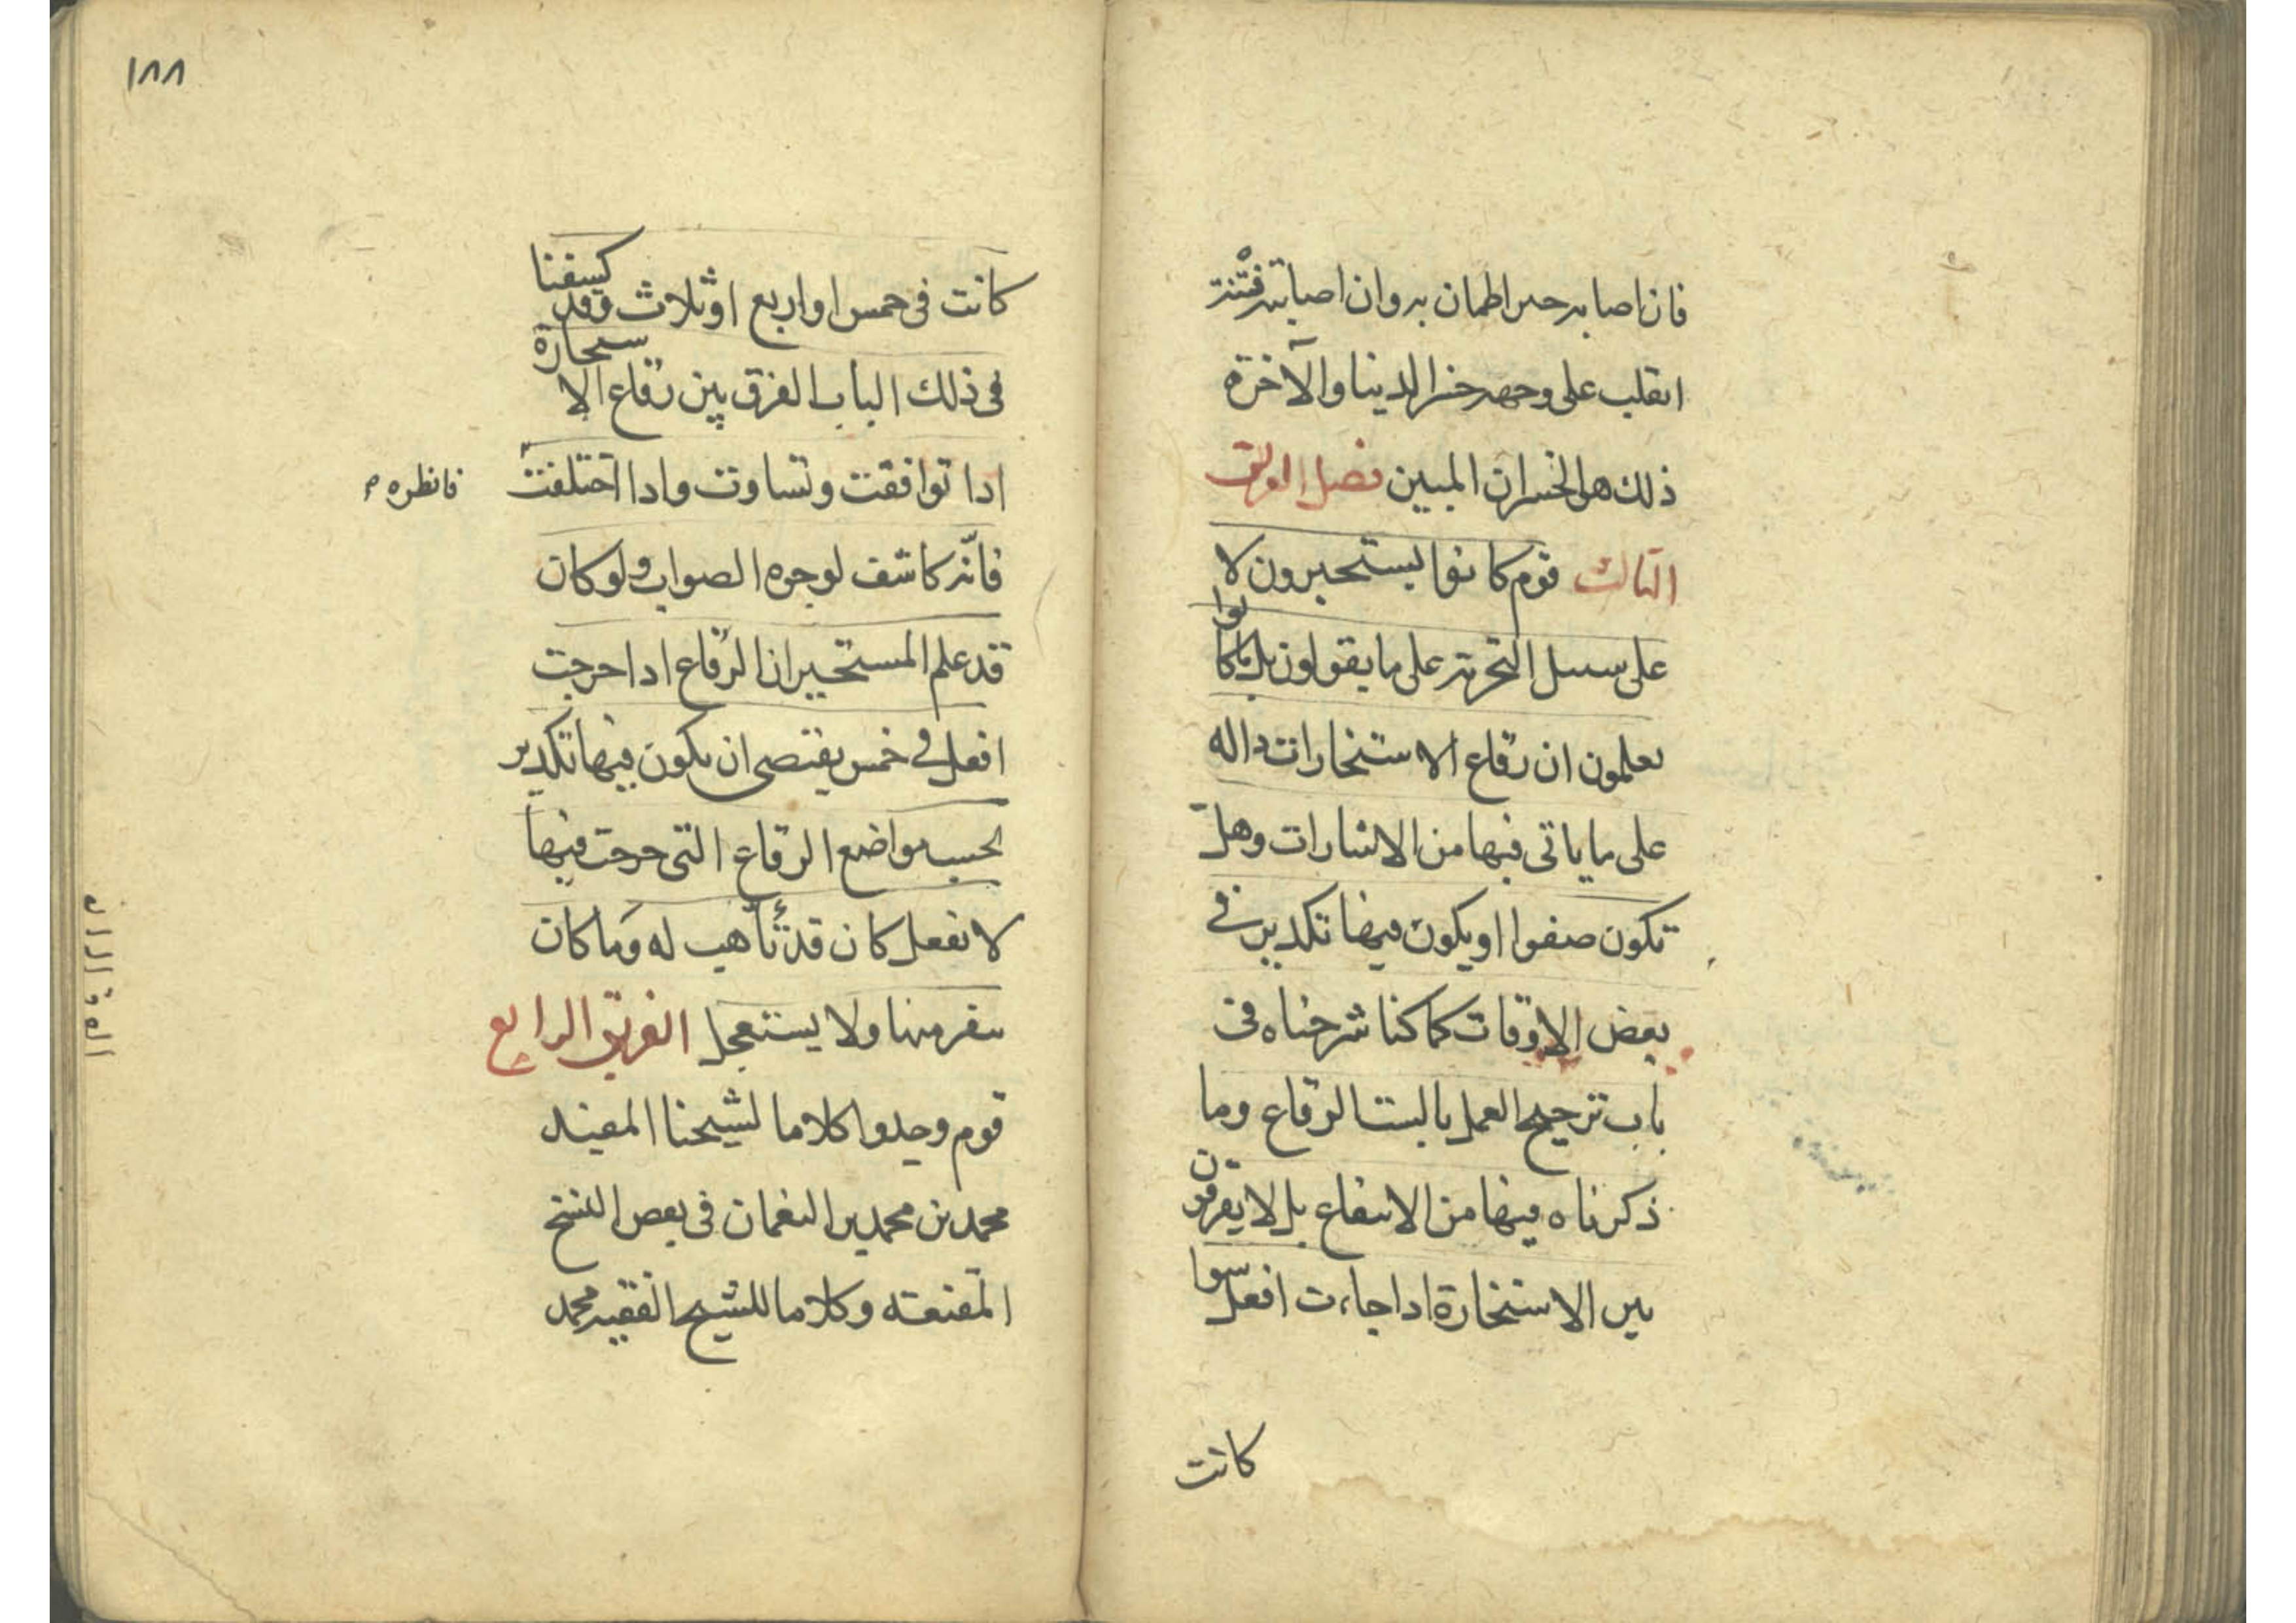 فان اصابه حىر اطمان به وان اصابته فتنة
انقلب على وجهه خسر الدينا والآخرة
ذلك هو الخسران المبين فصل الفريق
الثالث قوم كانوا يستخيرون لا
على سبيل التجربة على ما يقولون بل ما كانوا
يعلمون ان رقاع الاستخارات داله
على ما ياتى فيها من الاشارات وهل
تكون صفوا او يكون فيها تكدير في
بعض الاوقات كما كنا شرحناه فى
باب ترجيح العمل بالست الرقاع وما
ذكرناه فيها من الانتفاع بل لا يفرقون
بين الاستخارة اذا جاءت افعل سوا
كانت
١٨٨
كانت فى خمس او اربع او ثلاث وقد كشفنا
فى ذلك الباب الفرق بين رقاع الاستخارة
اذا توافقت وتساوت واذا اختلفت فانظره
فانّه كاشف لوجوه الصواب ولو كان
قد علم المستخير ان الرقاع اذا خرجت
افعل في خمس يقتضى ان يكون فيها تكدير
بحسب مواضع الرقاع التى خرجت فيها
لا تفعل كان قد تأهب له وما كان
ينفر منها ولا يستعجل الفريق الرابع
قوم وجدوا كلاما لشيخنا المفيد
محمد بن محمد بن النعمان فى بعض النسخ
المقنعه وكلاما للشيخ الفقيه محمد